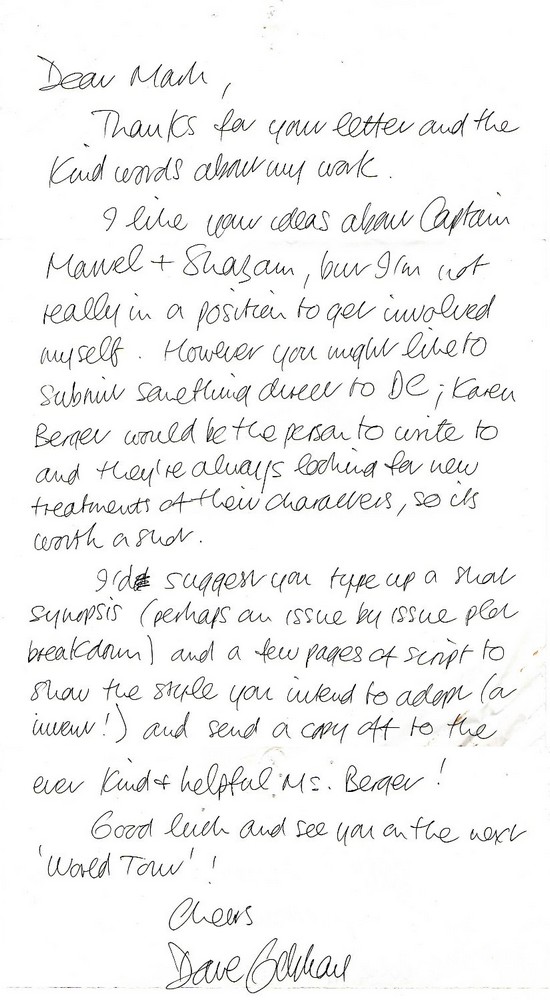 Dear Mark,
Thanks for your letter and the
kind words about my work.
I like your ideas about Captain
Marvel + Shazam, but I'm not
really in a position to get involved
myself. However you might like to
submit something direct to DC; Karen
Berger would be the person to write to
and they're always looking for new
treatments of their characters, so its
worth a shot.
I'd suggest you type up a short
synopsis (perhaps an issue by issue plot
breakdown) and a few pages of script to
show the style you intend to adopt (or
invent!) and send a copy off to the
ever kind & helpful Ms. Berger!
Good luck and see you on the next
'World Tour'!
Cheers
Dave Gibbons